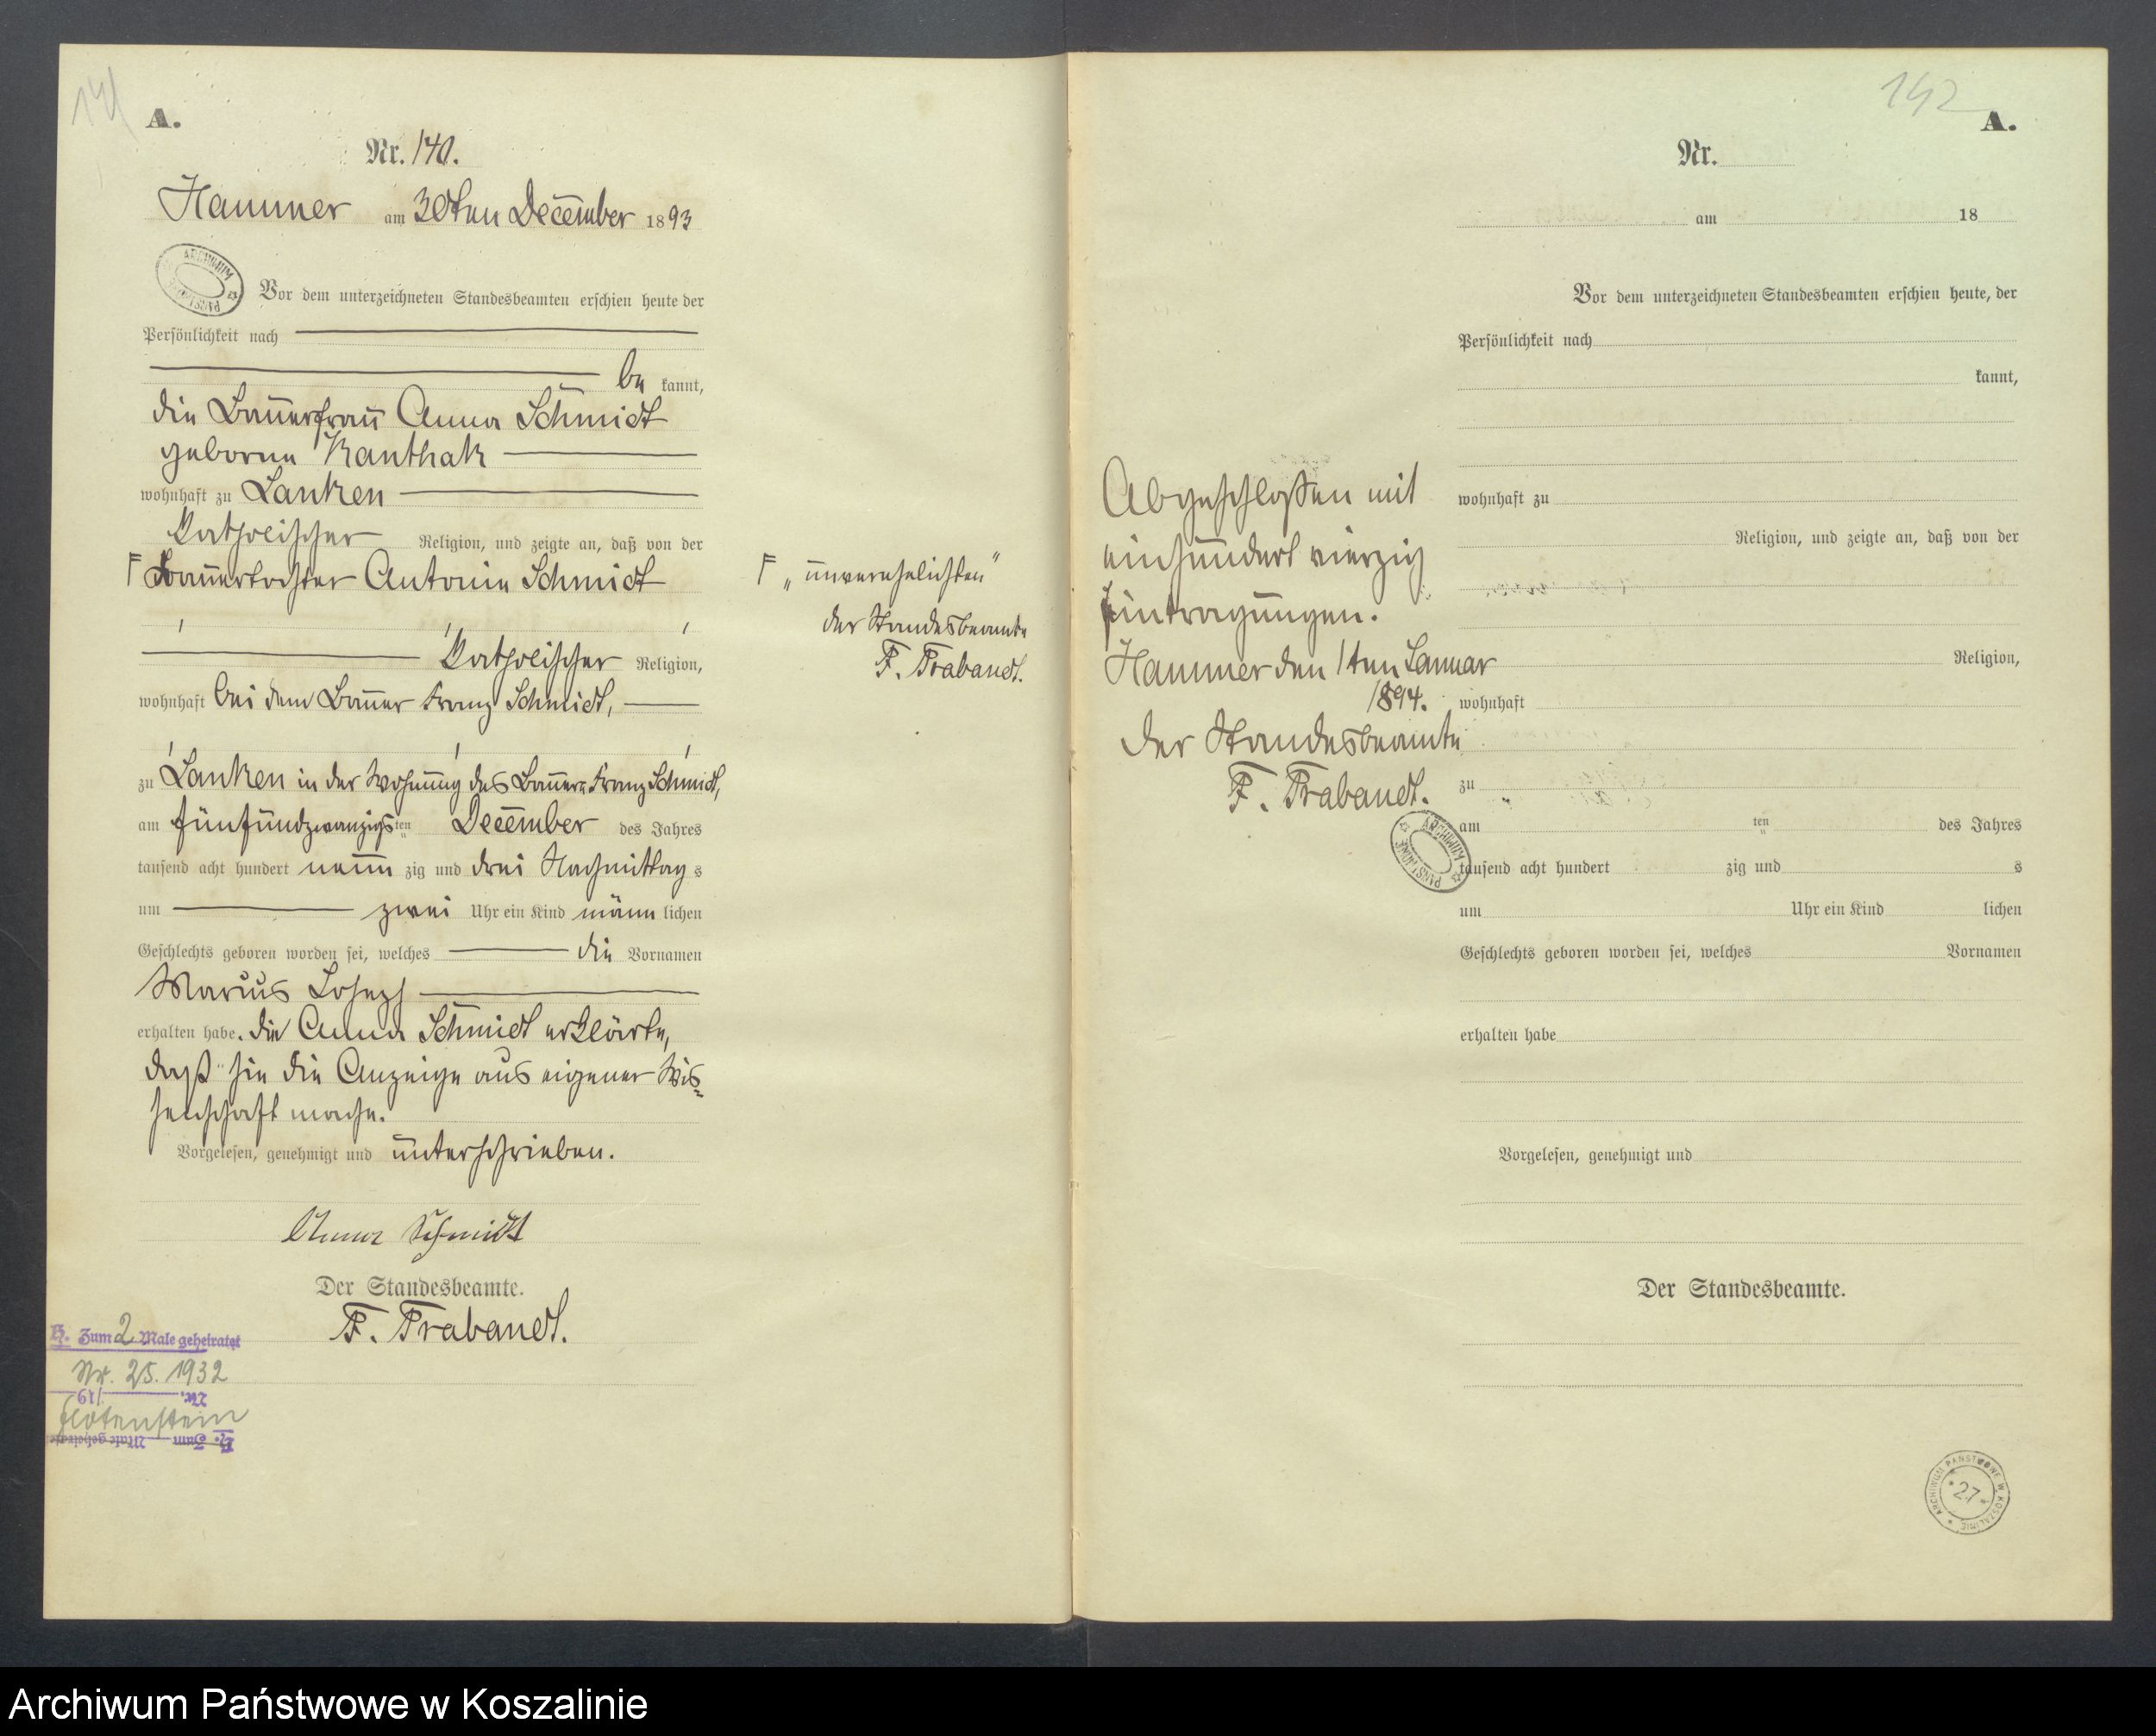 141
A.
Nr. 140.
Hammer am 30ten December 1893
ARCHIWUM PAŃSTWOWE
Vor dem unterzeichneten Standesbeamten erschien heute der
Persönlichkeit nach
be kannt,
die Bauerfrau Anna Schmidt
geborne Kanthak
wohnhaft zu Lanken
katholischer Religion, und zeigte an, daß von der
F Bauertochter Antonie Schmidt
katholischer Religion,
wohnhaft bei dem Bauer Franz Schmidt,
zu Lanken in der Wohnung des Bauern Franz Schmidt,
am fünfundzwanzigsten December des Jahres
tausend acht hundert neun zig und drei Nachmittag s
um zwei Uhr ein Kind männ lichen
Geschlechts geboren worden sei, welches die Vornamen
Marius Joseph
erhalten habe. die Anna Schmidt erklärte,
daß sie die Anzeige aus eigener Wis=
senschaft mache.
Vorgelesen, genehmigt und unterschrieben.
Anna Schmidt
Der Standesbeamte.
F. Trabandt.
H. Zum 2 Male geheiratet
Nr. 25. 1932
Nr. /19
Flötenstein
H. Zum Male geheiratet
F „unverehelichten“
der Standesbeamte
F. Trabandt.
142
A.
Nr.
am 18
Vor dem unterzeichneten Standesbeamten erschien heute, der
Persönlichkeit nach
kannt,
Abgeschlossen mit
einhundert vierzig
Eintragungen.
Hammer den 1ten Januar
1894.
der Standesbeamte
F. Trabandt.
ARCHIWUM PAŃSTWOWE
wohnhaft zu
Religion, und zeigte an, daß von der
Religion,
wohnhaft
zu
am ten des Jahres
tausend acht hundert zig und s
um Uhr ein Kind lichen
Geschlechts geboren worden sei, welches Vornamen
erhalten habe
Vorgelesen, genehmigt und
Der Standesbeamte.
ARCHIWUM PAŃSTWOWE W KOSZALINIE
* 27 *
Archiwum Państwowe w Koszalinie